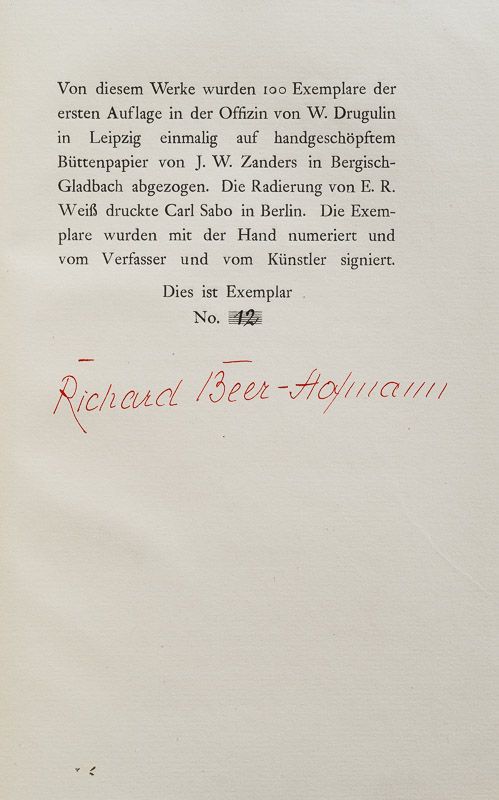 Von diesem Werke wurden 100 Exemplare der
ersten Auflage in der Offizin von W. Drugulin
in Leipzig einmalig auf handgeschöpftem
Büttenpapier von J. W. Zanders in Bergisch-
Gladbach abgezogen. Die Radierung von E. R.
Weiß druckte Carl Sabo in Berlin. Die Exem-
plare wurden mit der Hand numeriert und
vom Verfasser und vom Künstler signiert.
Dies ist Exemplar
No. 12
Richard Beer-Hofmann